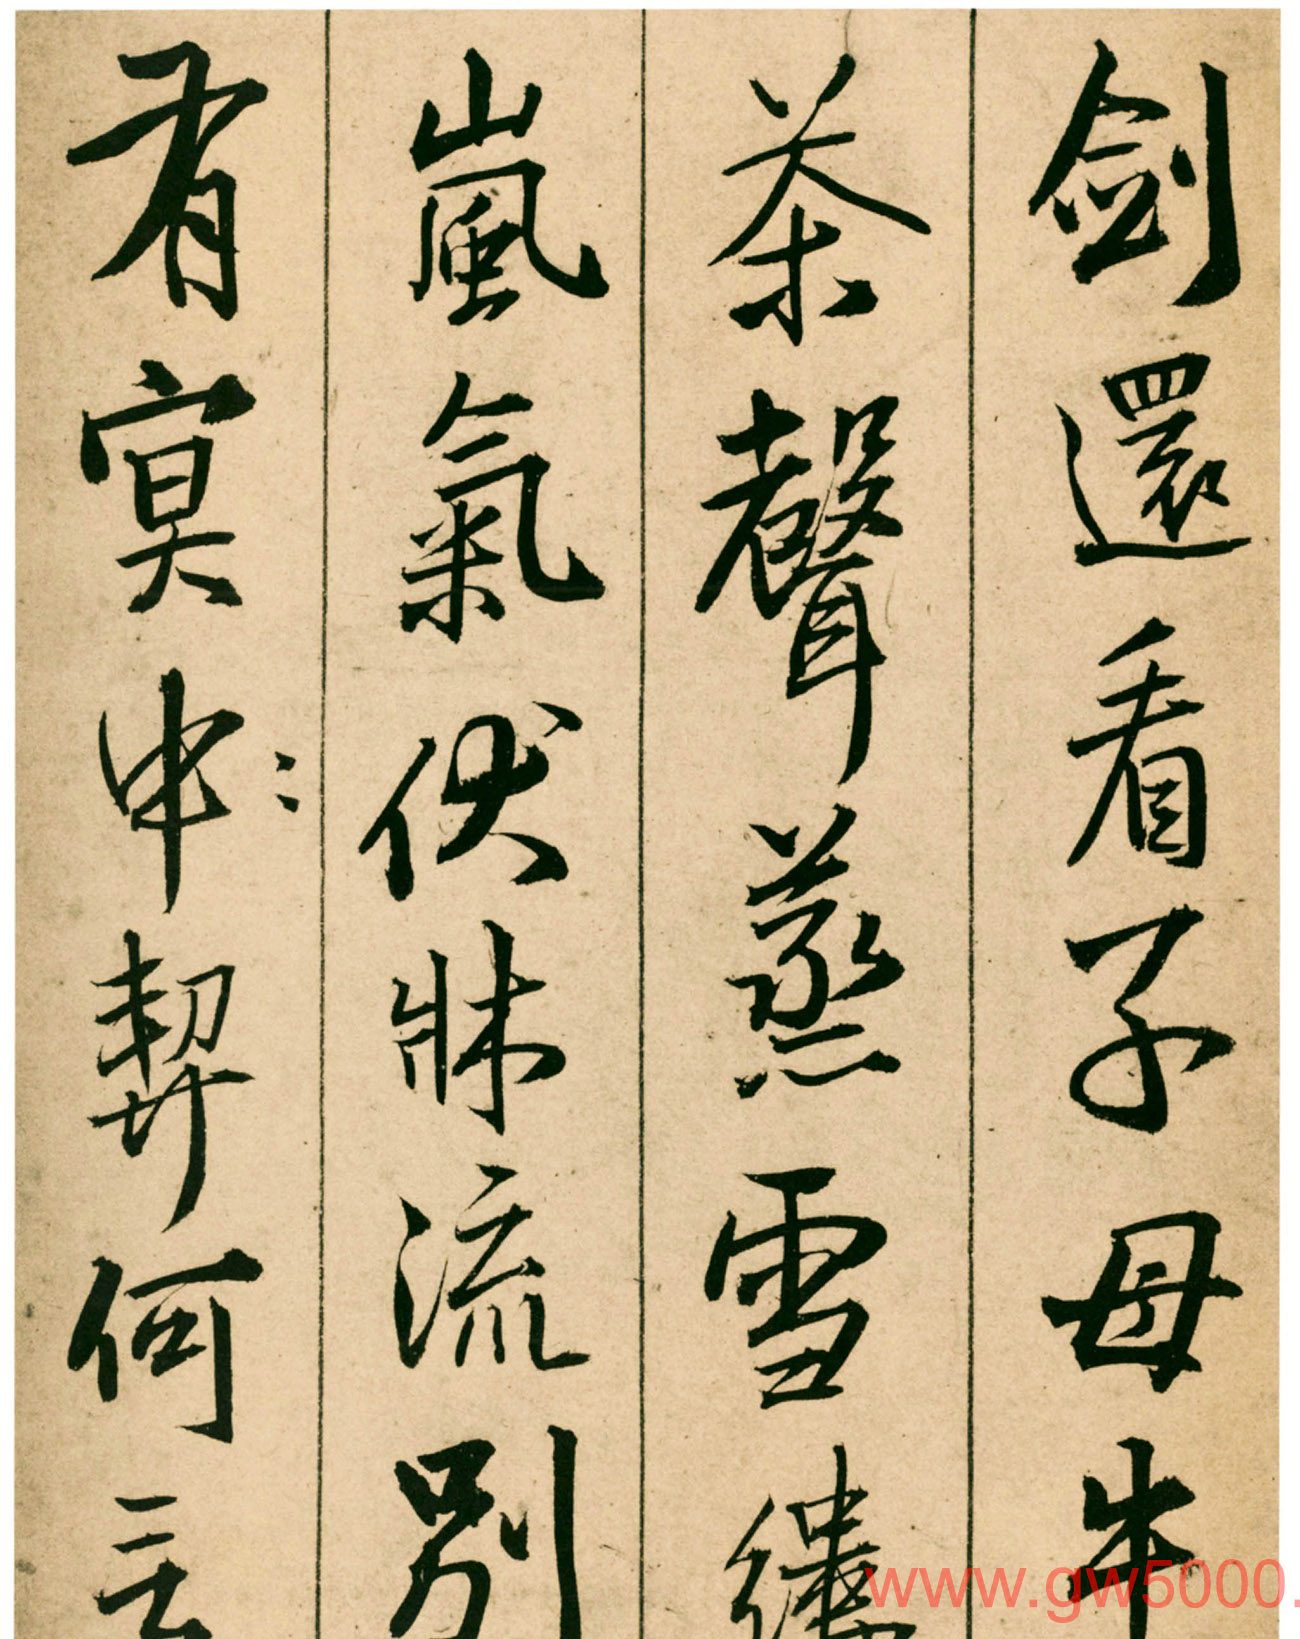 劍還看子母牛
茶聲蒸雪縷
嵐氣伏牀流別
有冥申契何言
www.gw5000.